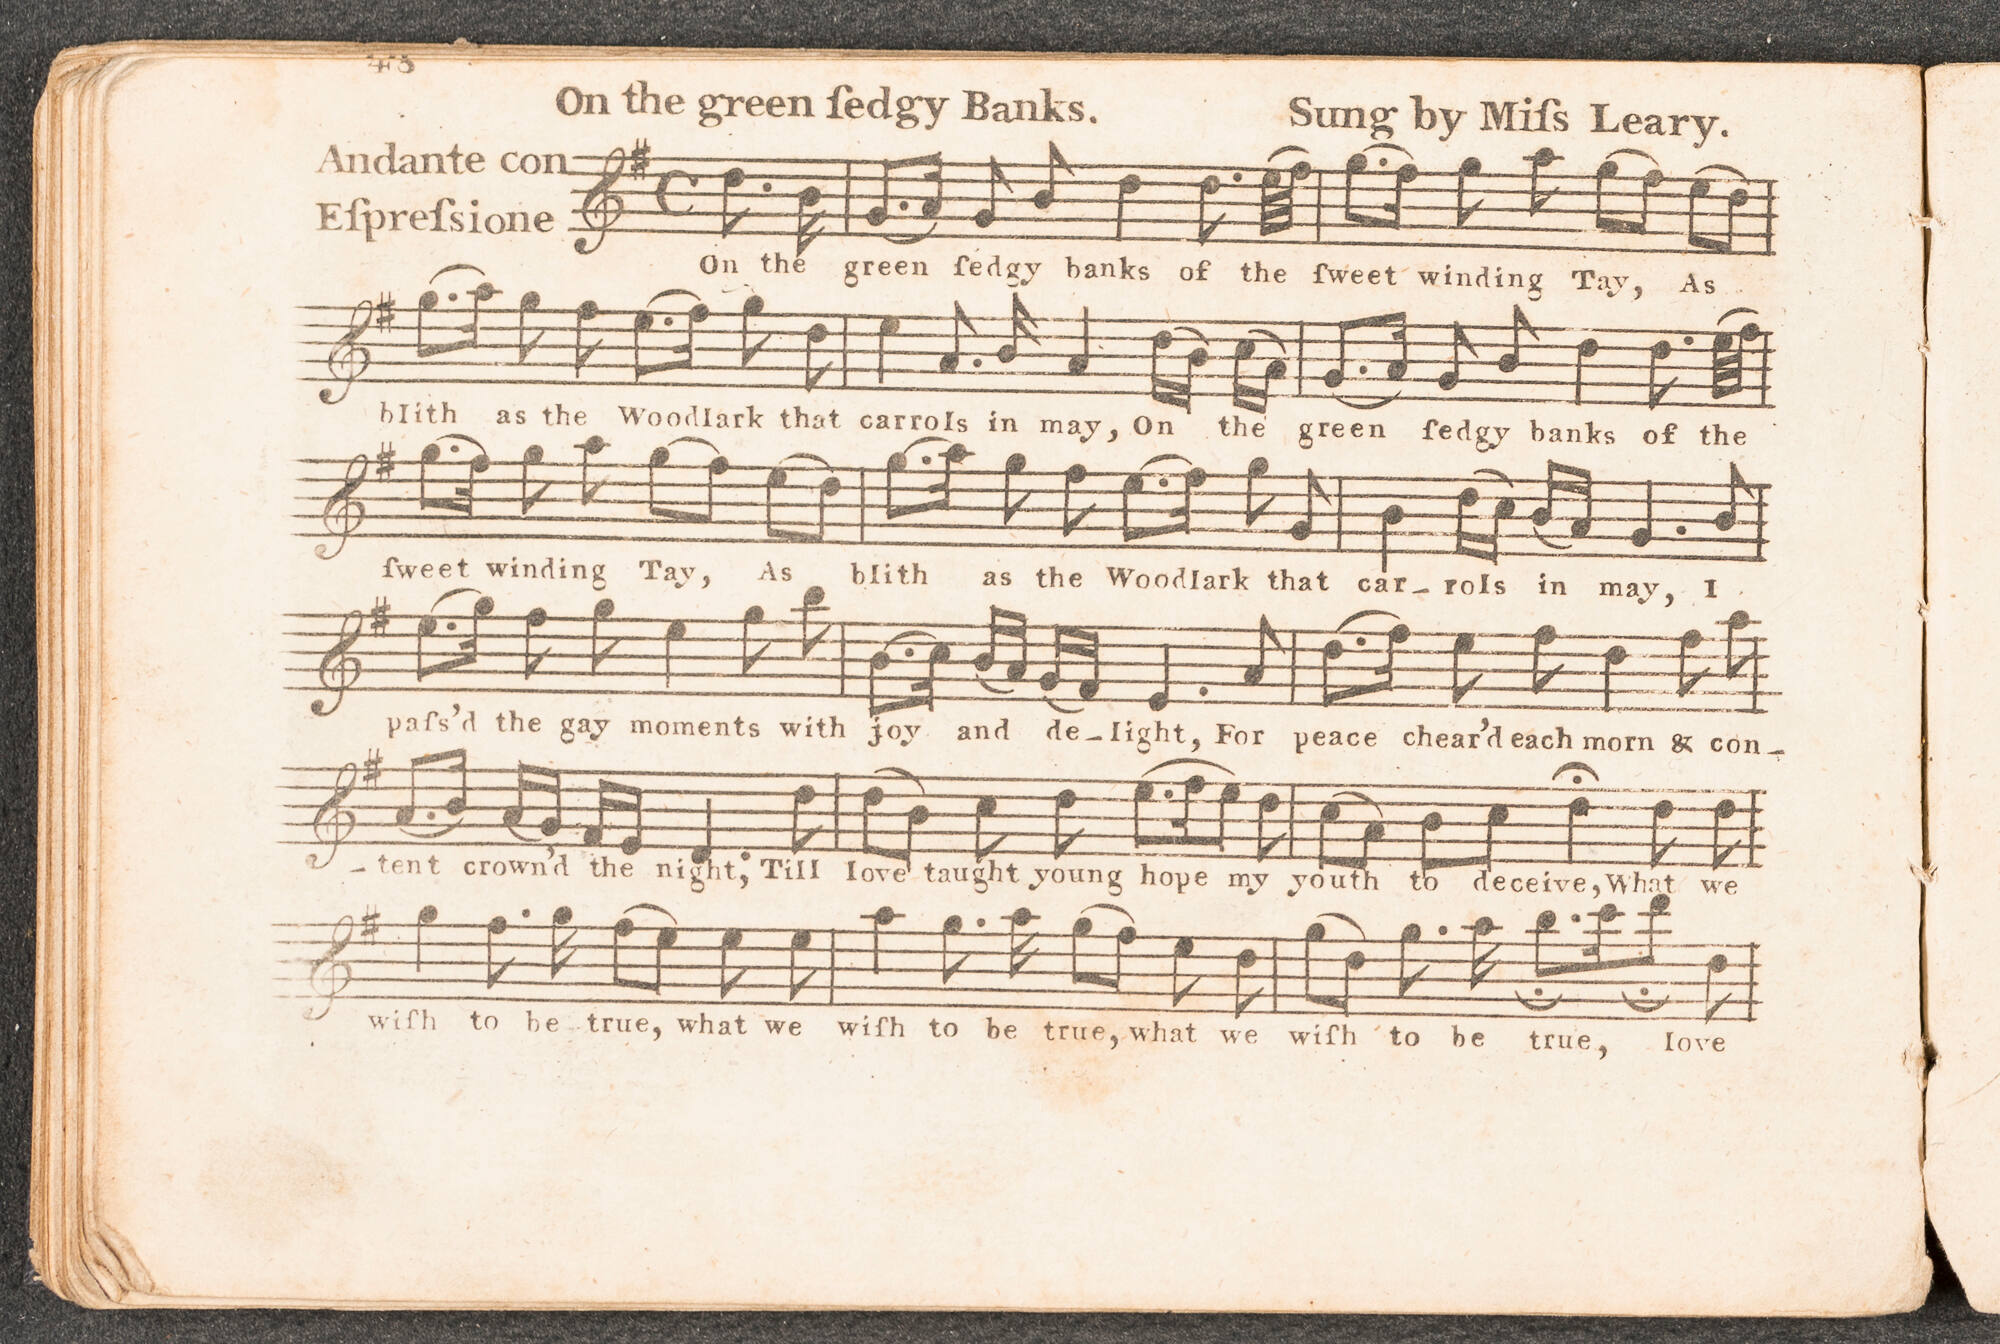 48
On the green ſedgy Banks. Sung by Miſs Leary.
Andante con
Eſpreſsione
On the green ſedgy banks of the ſweet winding Tay, As
blith as the Woodlark that carrols in may, On the green ſedgy banks of the
ſweet winding Tay, As blith as the Woodlark that car-rols in may, I
paſs'd the gay moments with joy and de-light, For peace chear'd each morn & con-
-tent crown'd the night; Till love taught young hope my youth to deceive, What we
wiſh to be true, what we wiſh to be true, what we wiſh to be true, love